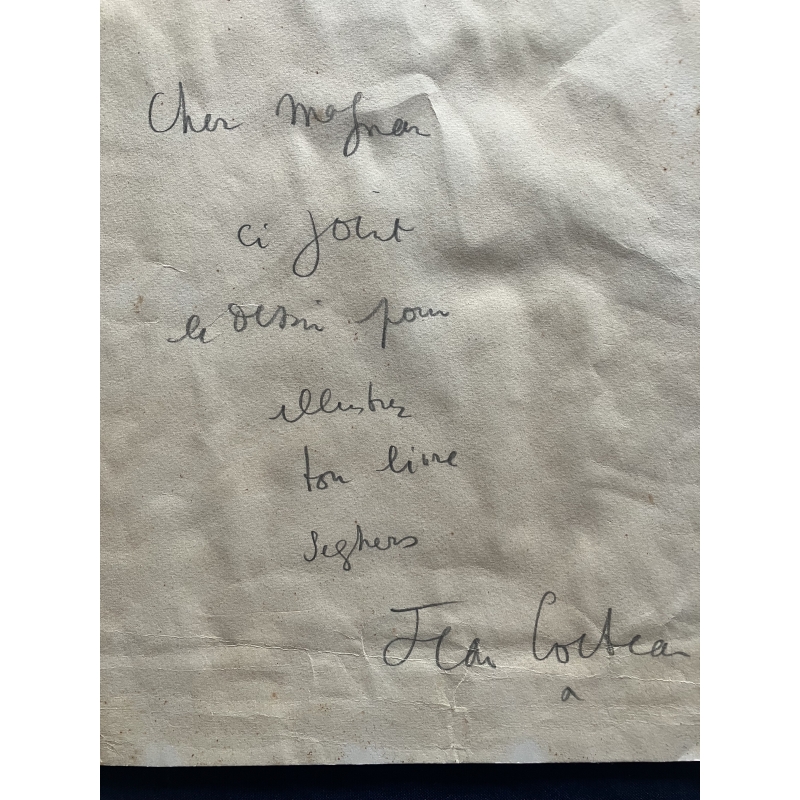 Cher Magnan
ci joint
le dessin pour
illustrer
ton livre
Seghers
Jean Cocteau
a